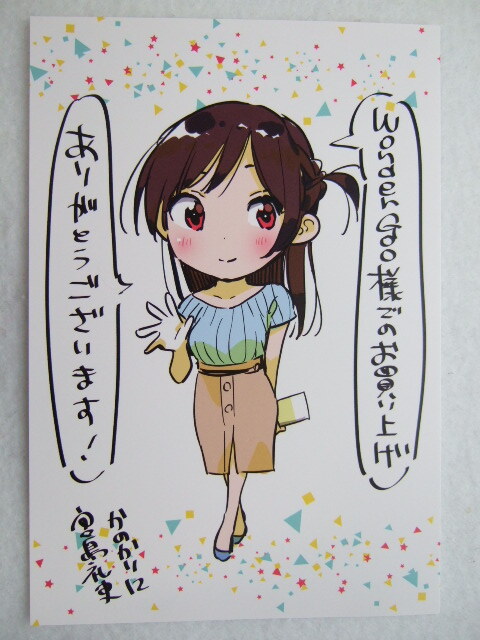 WonderGOO様でのお買い上げ
ありがとうございます!
かのかり12
宮島礼吏